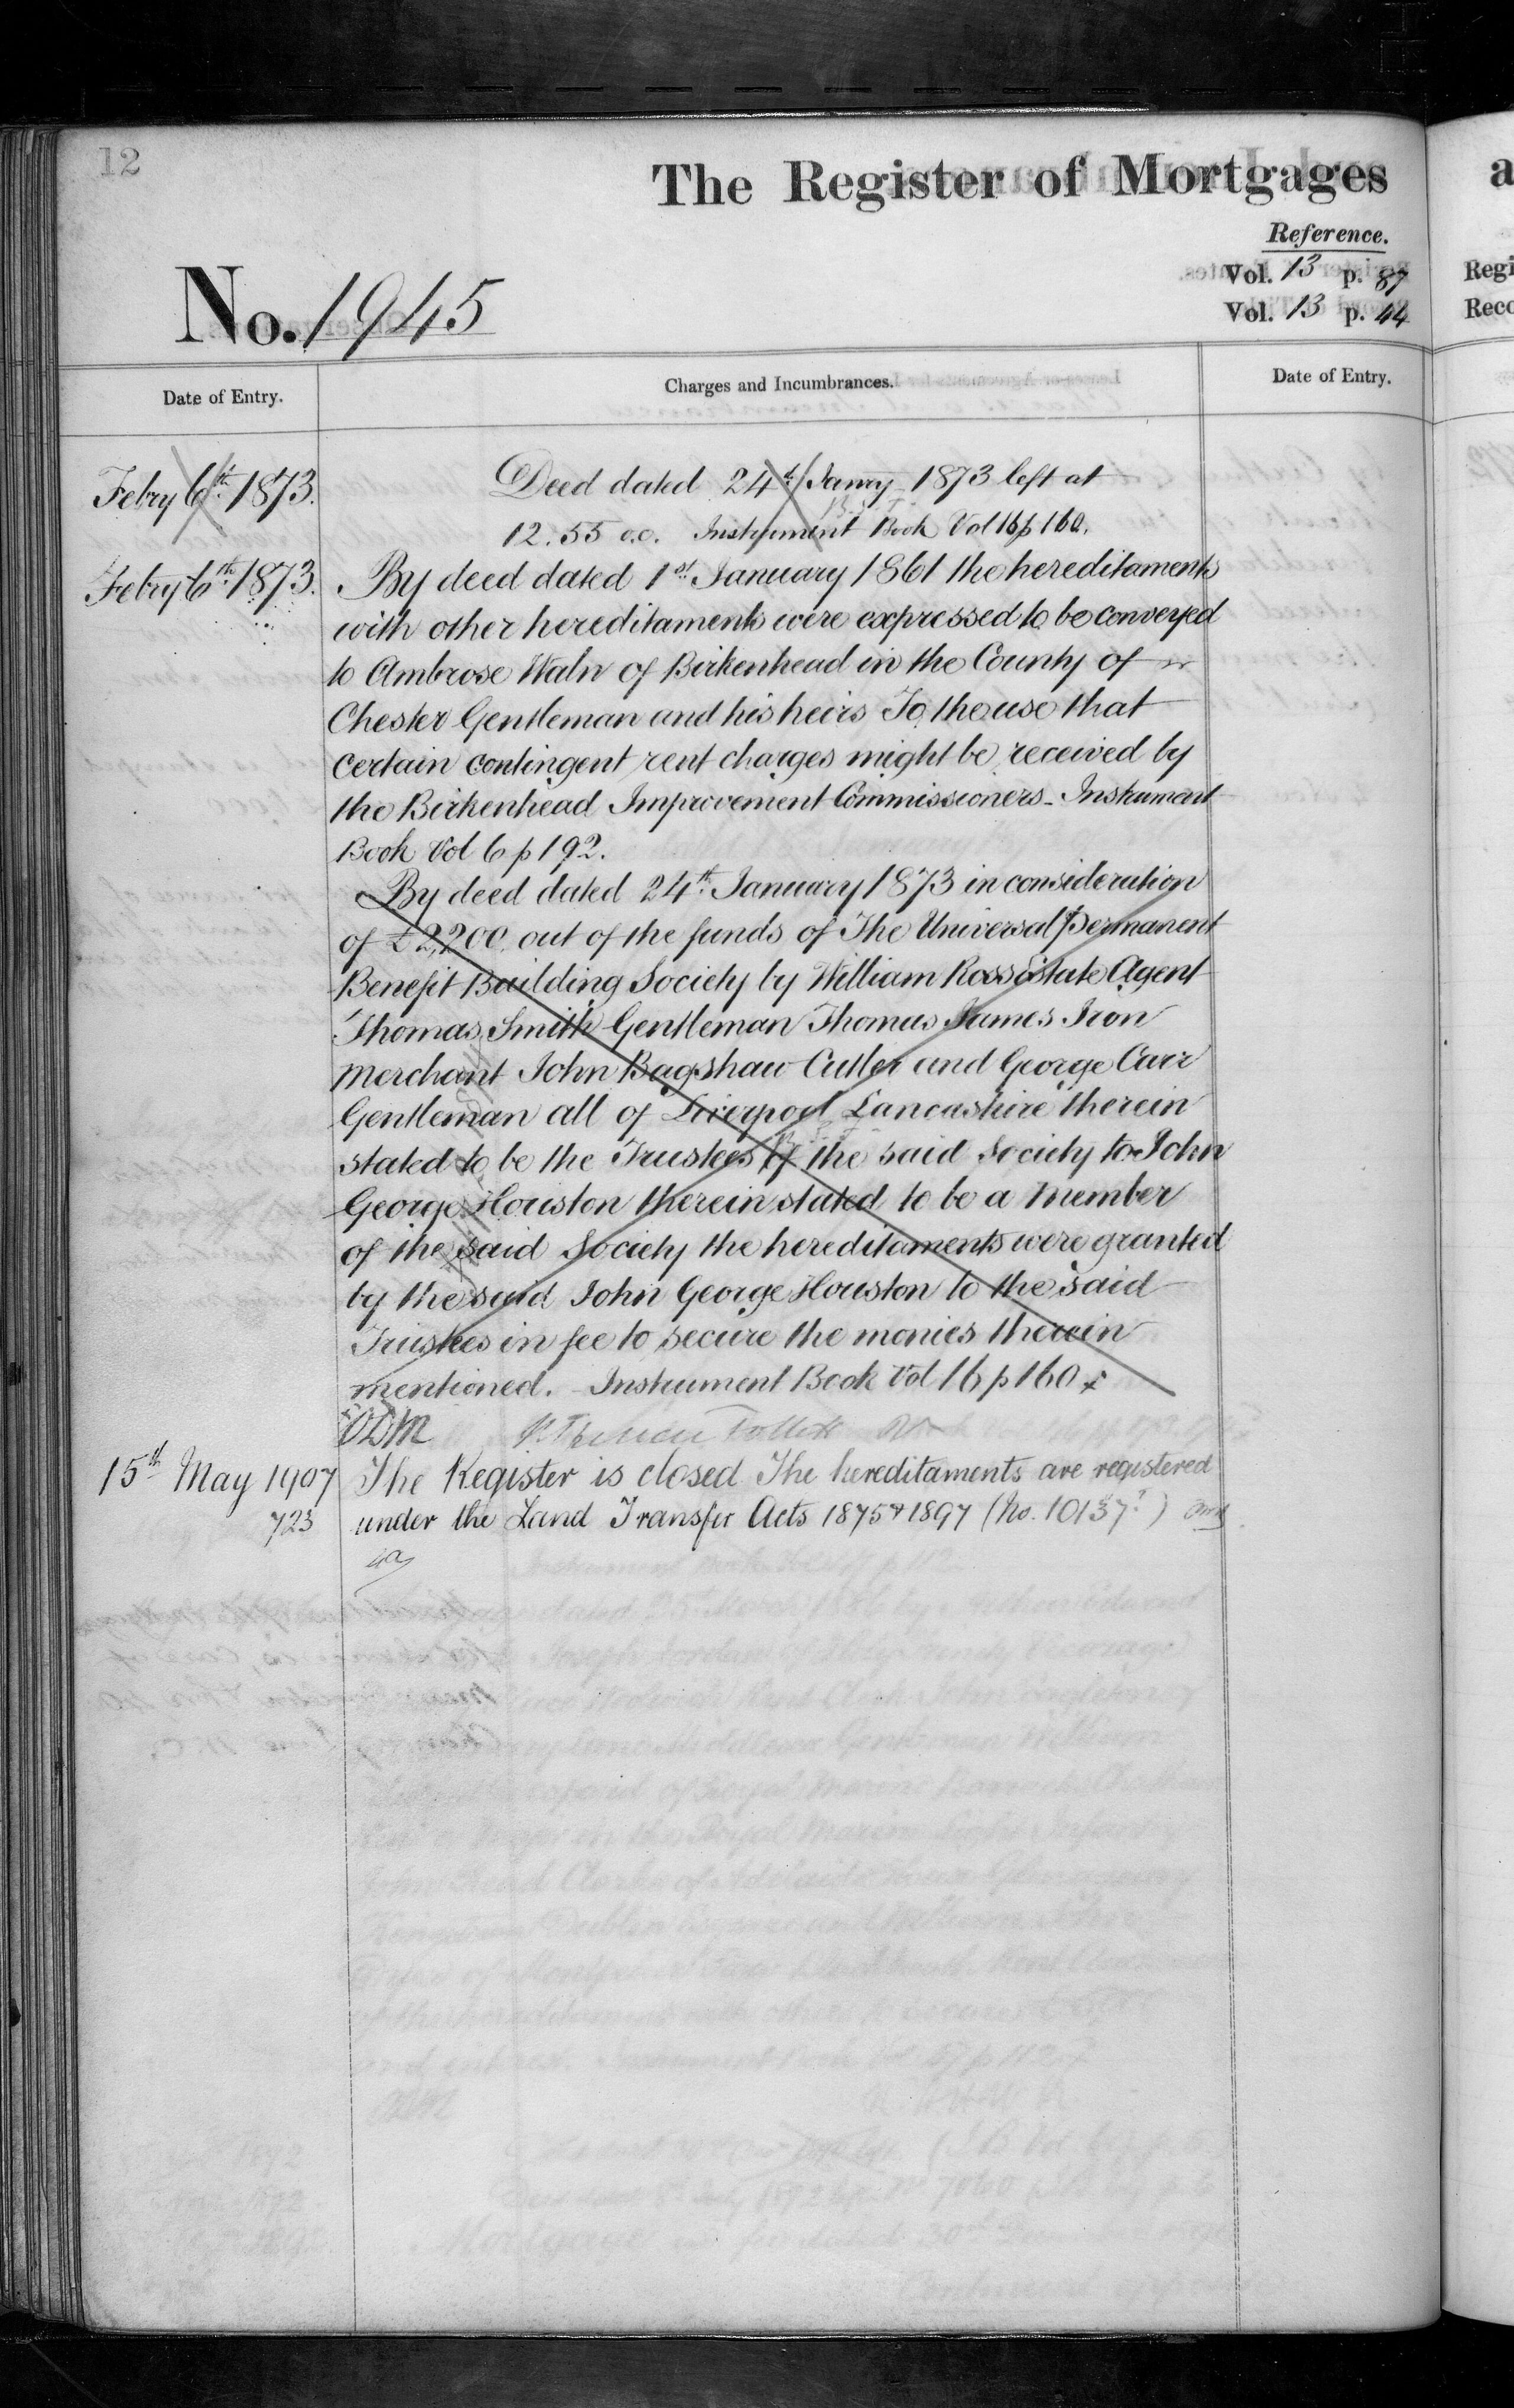 12
The Register of Mortgages
Reference.
Vol. 13 p. 87
Vol. 13 p. 44
No. 1945
Date of Entry.
Charges and Incumbrances.
Date of Entry.
Febry 6th 1873.
Deed dated 24th Janry 1873 left at
12.55 o.c. Instrument Book Vol 16 p 160.
Febry 6th 1873.
By deed dated 1st January 1861 the hereditaments
with other hereditaments were expressed to be conveyed
to Ambrose Waln of Birkenhead in the County of
Chester Gentleman and his heirs To the use that
certain contingent rent charges might be received by
the Birkenhead Improvement Commissioners - Instrument
Book Vol 6 p 192.
By deed dated 24th January 1873 in consideration
of £2,200 out of the funds of The Universal Permanent
Benefit Building Society by William Ross Estate Agent
Thomas Smith Gentleman Thomas James Iron
Merchant John Bagshaw Cutler and George Carr
Gentleman all of Liverpool Lancashire therein
stated to be the Trustees of the said Society to John
George Houston therein stated to be a Member
of the said Society the hereditaments were granted
by the said John George Houston to the said
Trustees in fee to secure the monies therein
mentioned. - Instrument Book Vol 16 p 160
15th May 1907
The Register is closed The hereditaments are registered
723
under the Land Transfer Acts 1875 & 1897 (No. 10137)
Regi
Reco